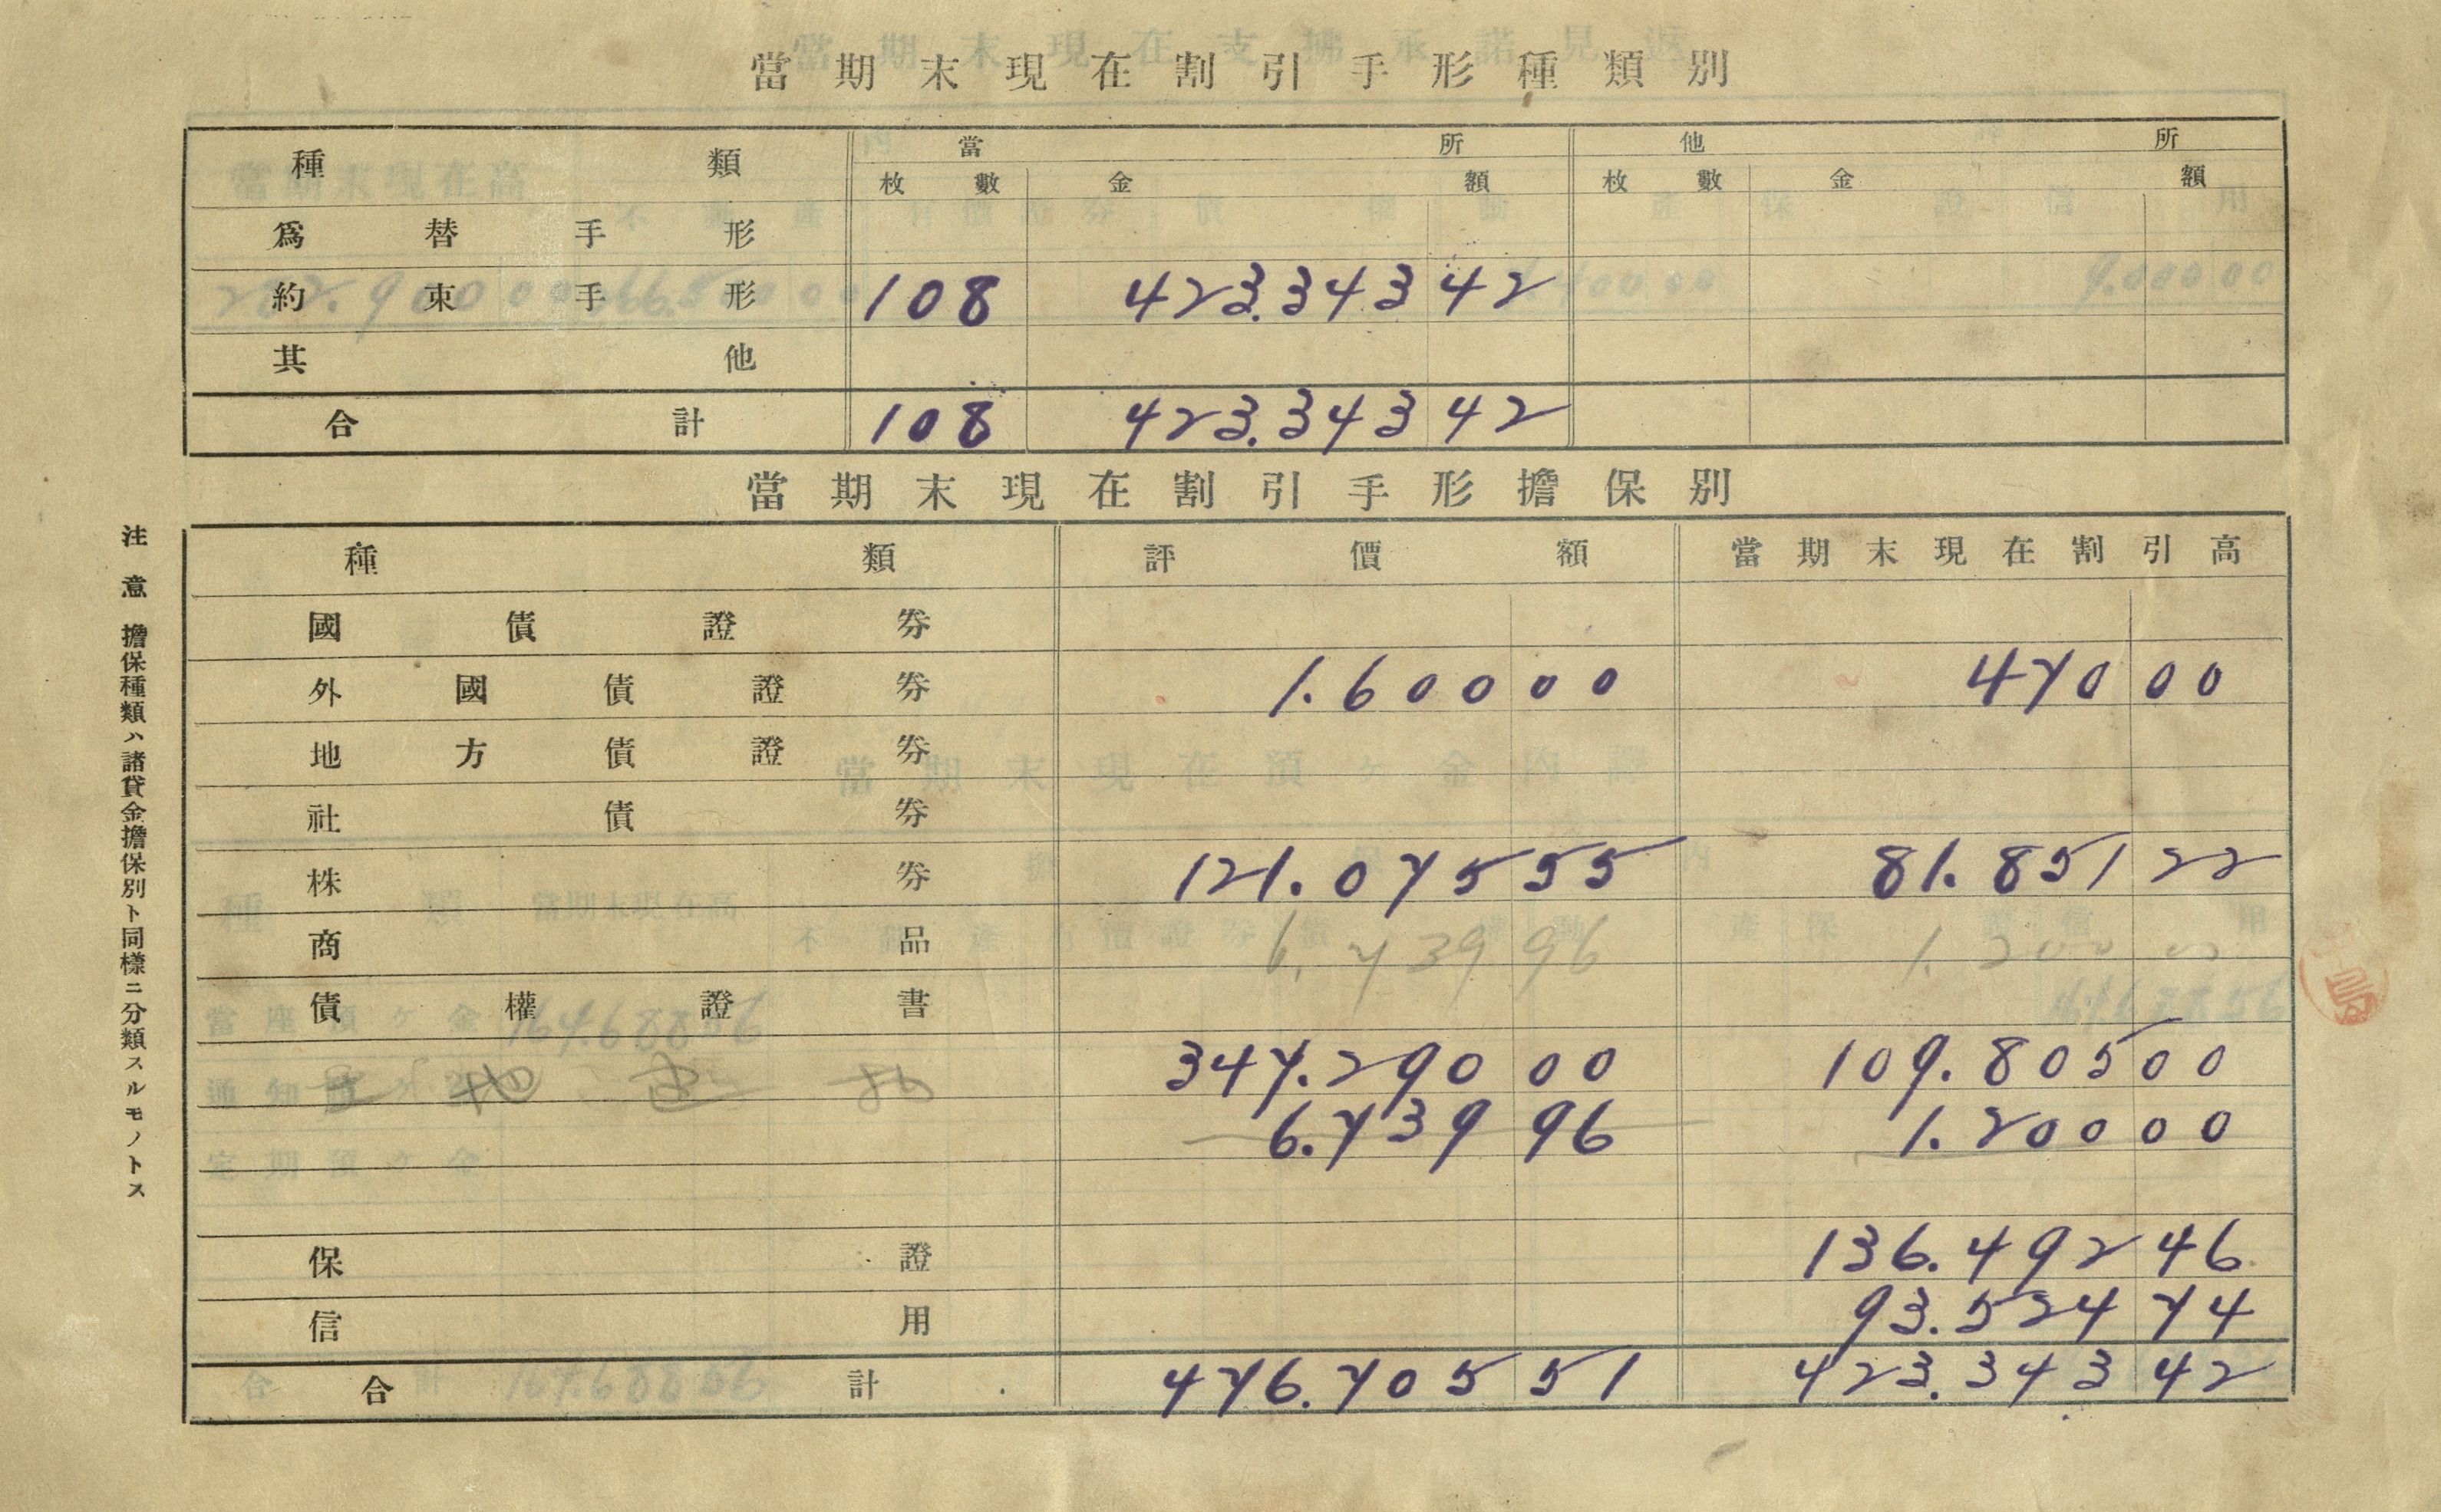 當期末現在割引手形種類別
種類 當所 他所
枚數 金額 枚數 金額
爲替手形
約束手形 108 423.343 42
其他
合計 108 423.343 42
當期末現在割引手形擔保別
種類 評價額 當期末現在割引高
國債證券
外國債證券 1.600 00 470 00
地方債證券
社債券
株券 121.075 55 81.851 22
商品 6.739 96 1.200 00
債權證書
土地建物 347.290 00 109.805 00
6.739 96 1.200 00
保證 136.492 46
信用 93.524 74
合計 476.705 51 423.343 42
注意 擔保種類ハ諸貸金擔保別ト同樣ニ分類スルモノトス